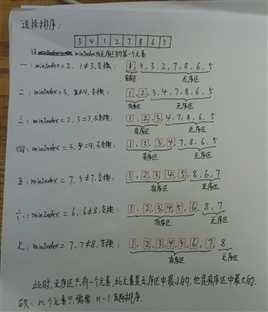 选择排序:
3 4 1 2 7 8 6 5
minIndex
一: minIndex=2, 1≠3, 交换: 1, 4, 3, 2, 7, 8, 6, 5
有序区 无序区
二: minIndex=3, 交换: 1, 2, 3, 4, 7, 8, 6, 5
有序区 无序区
三: minIndex=2, 3=3, 1, 2, 3, 4, 7, 8, 6, 5
有序区 无序区
四: minIndex=3, 4=4, 1, 2, 3, 4, 7, 8, 6, 5
有序区 无序区
五: minIndex=7, 5≠7, 交换: 1, 2, 3, 4, 5, 8, 6, 7
有序区 无序区
六: minIndex=6, 6≠8, 交换: 1, 2, 3, 4, 5, 6, 8, 7
有序区 无序区
七: minIndex=7, 7≠8, 交换: 1, 2, 3, 4, 5, 6, 7, 8
有序区 无序区
此时, 无序区只有一个元素, 此元素是无序区中最小的, 也是有序区中最大的.
n个元素只需要 n-1 排序.